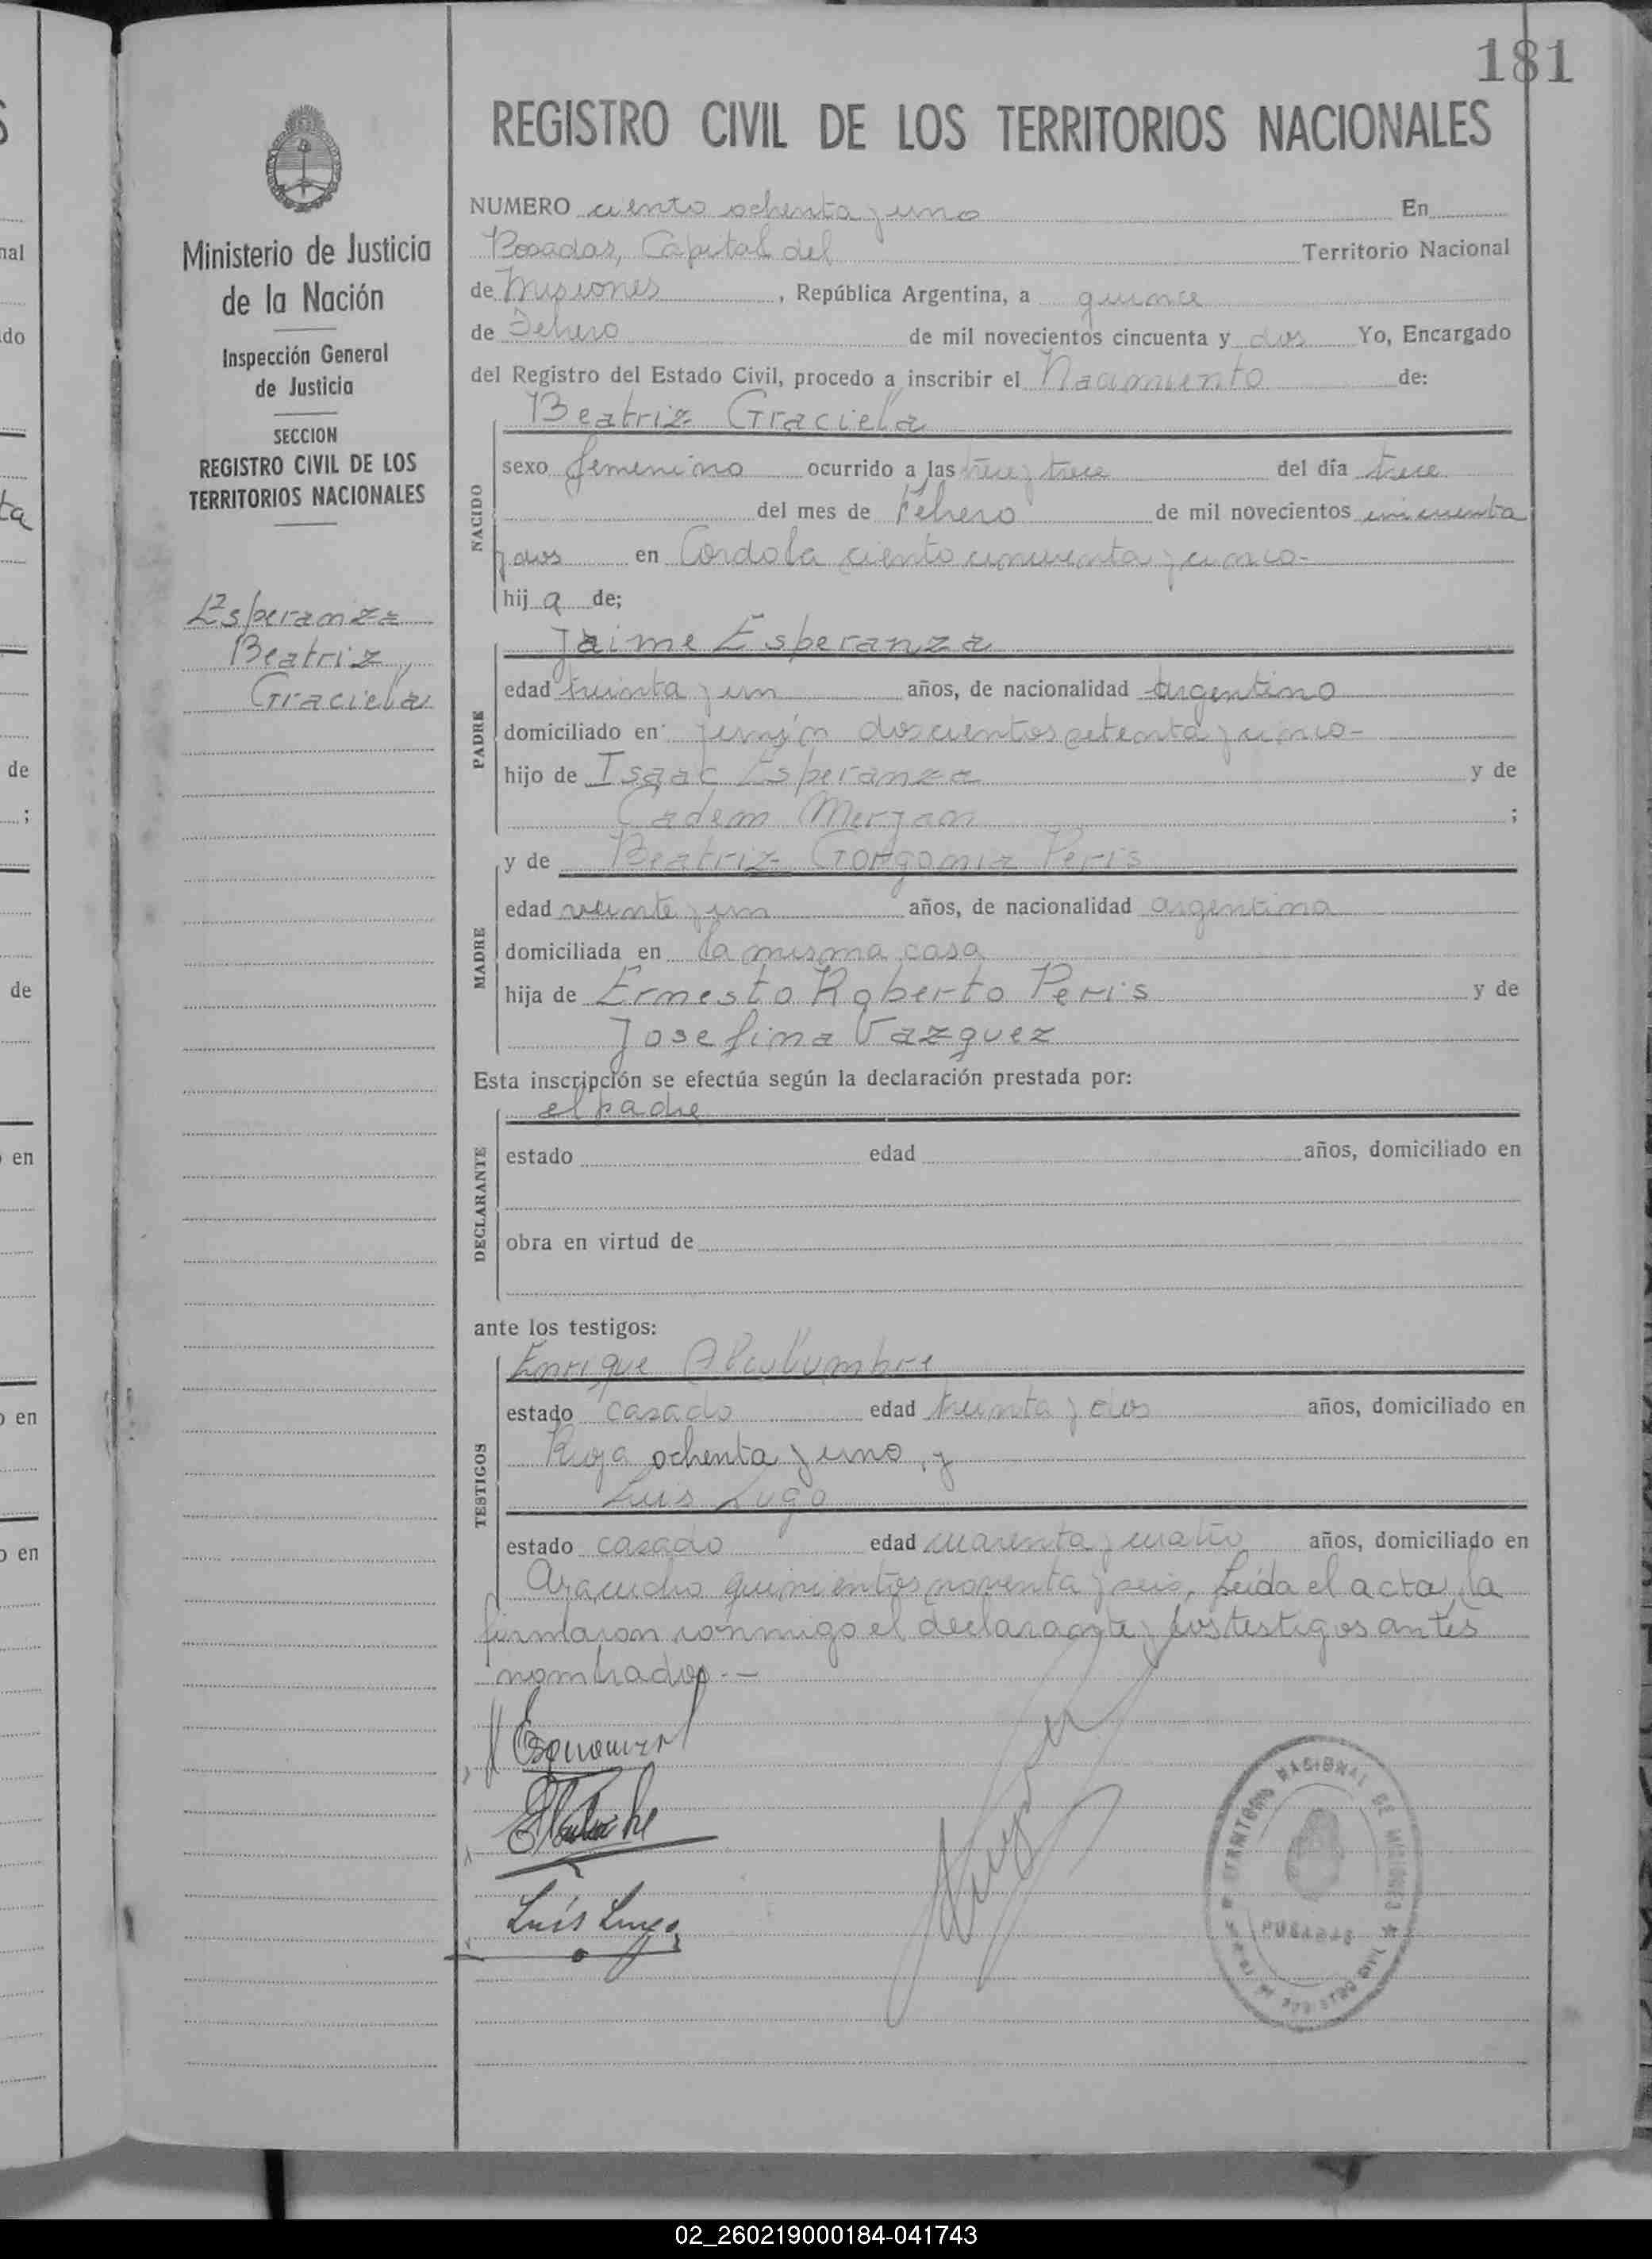 181
REGISTRO CIVIL DE LOS TERRITORIOS NACIONALES
Ministerio de Justicia
de la Nación
Inspección General
de Justicia
SECCION
REGISTRO CIVIL DE LOS
TERRITORIOS NACIONALES
Esperanza
Beatriz
Graciela
NUMERO ciento ochenta y uno En
Posadas, Capital del Territorio Nacional
de Misiones, República Argentina, a quince
de Febrero de mil novecientos cincuenta y dos Yo, Encargado
del Registro del Estado Civil, procedo a inscribir el Nacimiento de:
Beatriz Graciela
NACIDO
sexo femenino ocurrido a las trece y trece del día trece
del mes de Febrero de mil novecientos cincuenta
y dos en Cordoba ciento cincuenta y cinco-
hija de;
Jaime Esperanza
PADRE
edad treinta y un años, de nacionalidad argentino
domiciliado en Junín doscientos setenta y cinco-
hijo de Isaac Esperanza y de
Cadem Merjan ;
y de Beatriz Gorgonia Peris
MADRE
edad veinte y un años, de nacionalidad argentina
domiciliada en la misma casa
hija de Ernesto Roberto Peris y de
Josefina Vazquez
Esta inscripción se efectúa según la declaración prestada por:
el padre
DECLARANTE
estado edad años, domiciliado en
obra en virtud de
ante los testigos:
Enrique Alculumbre
TESTIGOS
estado casado edad treinta y dos años, domiciliado en
Rioja ochenta y uno, y
Luis Lugo
estado casado edad cuarenta y cuatro años, domiciliado en
Ayacucho quinientos noventa y seis, Leída el acta, la
firmaron conmigo el declarante y los testigos antes
nombrados.-
Luis Lugo
TERRITORIO NACIONAL DE MISIONES
POSADAS
nal
do
ta
de
;
de
en
en
en
02_260219000184-041743